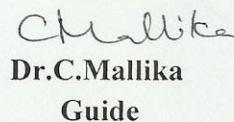 CMallika
Dr.C.Mallika
Guide